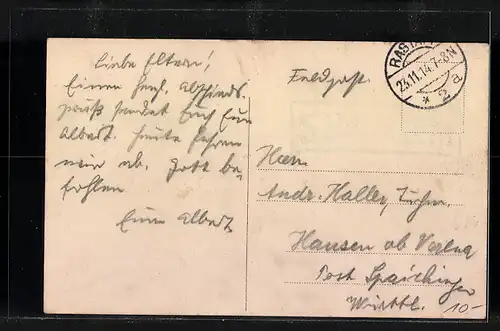 Liebe Eltern!
Einen herzl. Abschieds
gruß sendet Euch Euer
Albert. Heute fahren
wir ab. Gott be-
fohlen
Euer Albert
Feldpost.
RASTATT
23.11.14.7-8N
* 2a
Herrn
Andr. Haller,
Hausen ob Verena
Post Spaichingen
Württbg.
10-